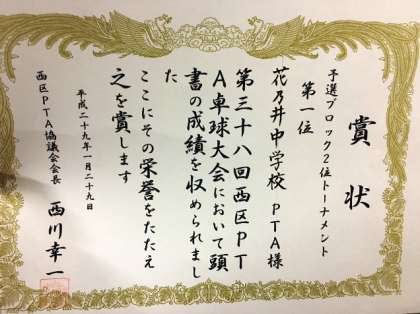 賞状
予選ブロック2位トーナメント
第一位
花乃井中学校 PTA様
第三十八回西区PT
A卓球大会において頭
書の成績を収められまし
た
ここにその栄誉をたたえ
之を賞します
平成二十九年一月二十九日
西区PTA協議会会長
西川幸一